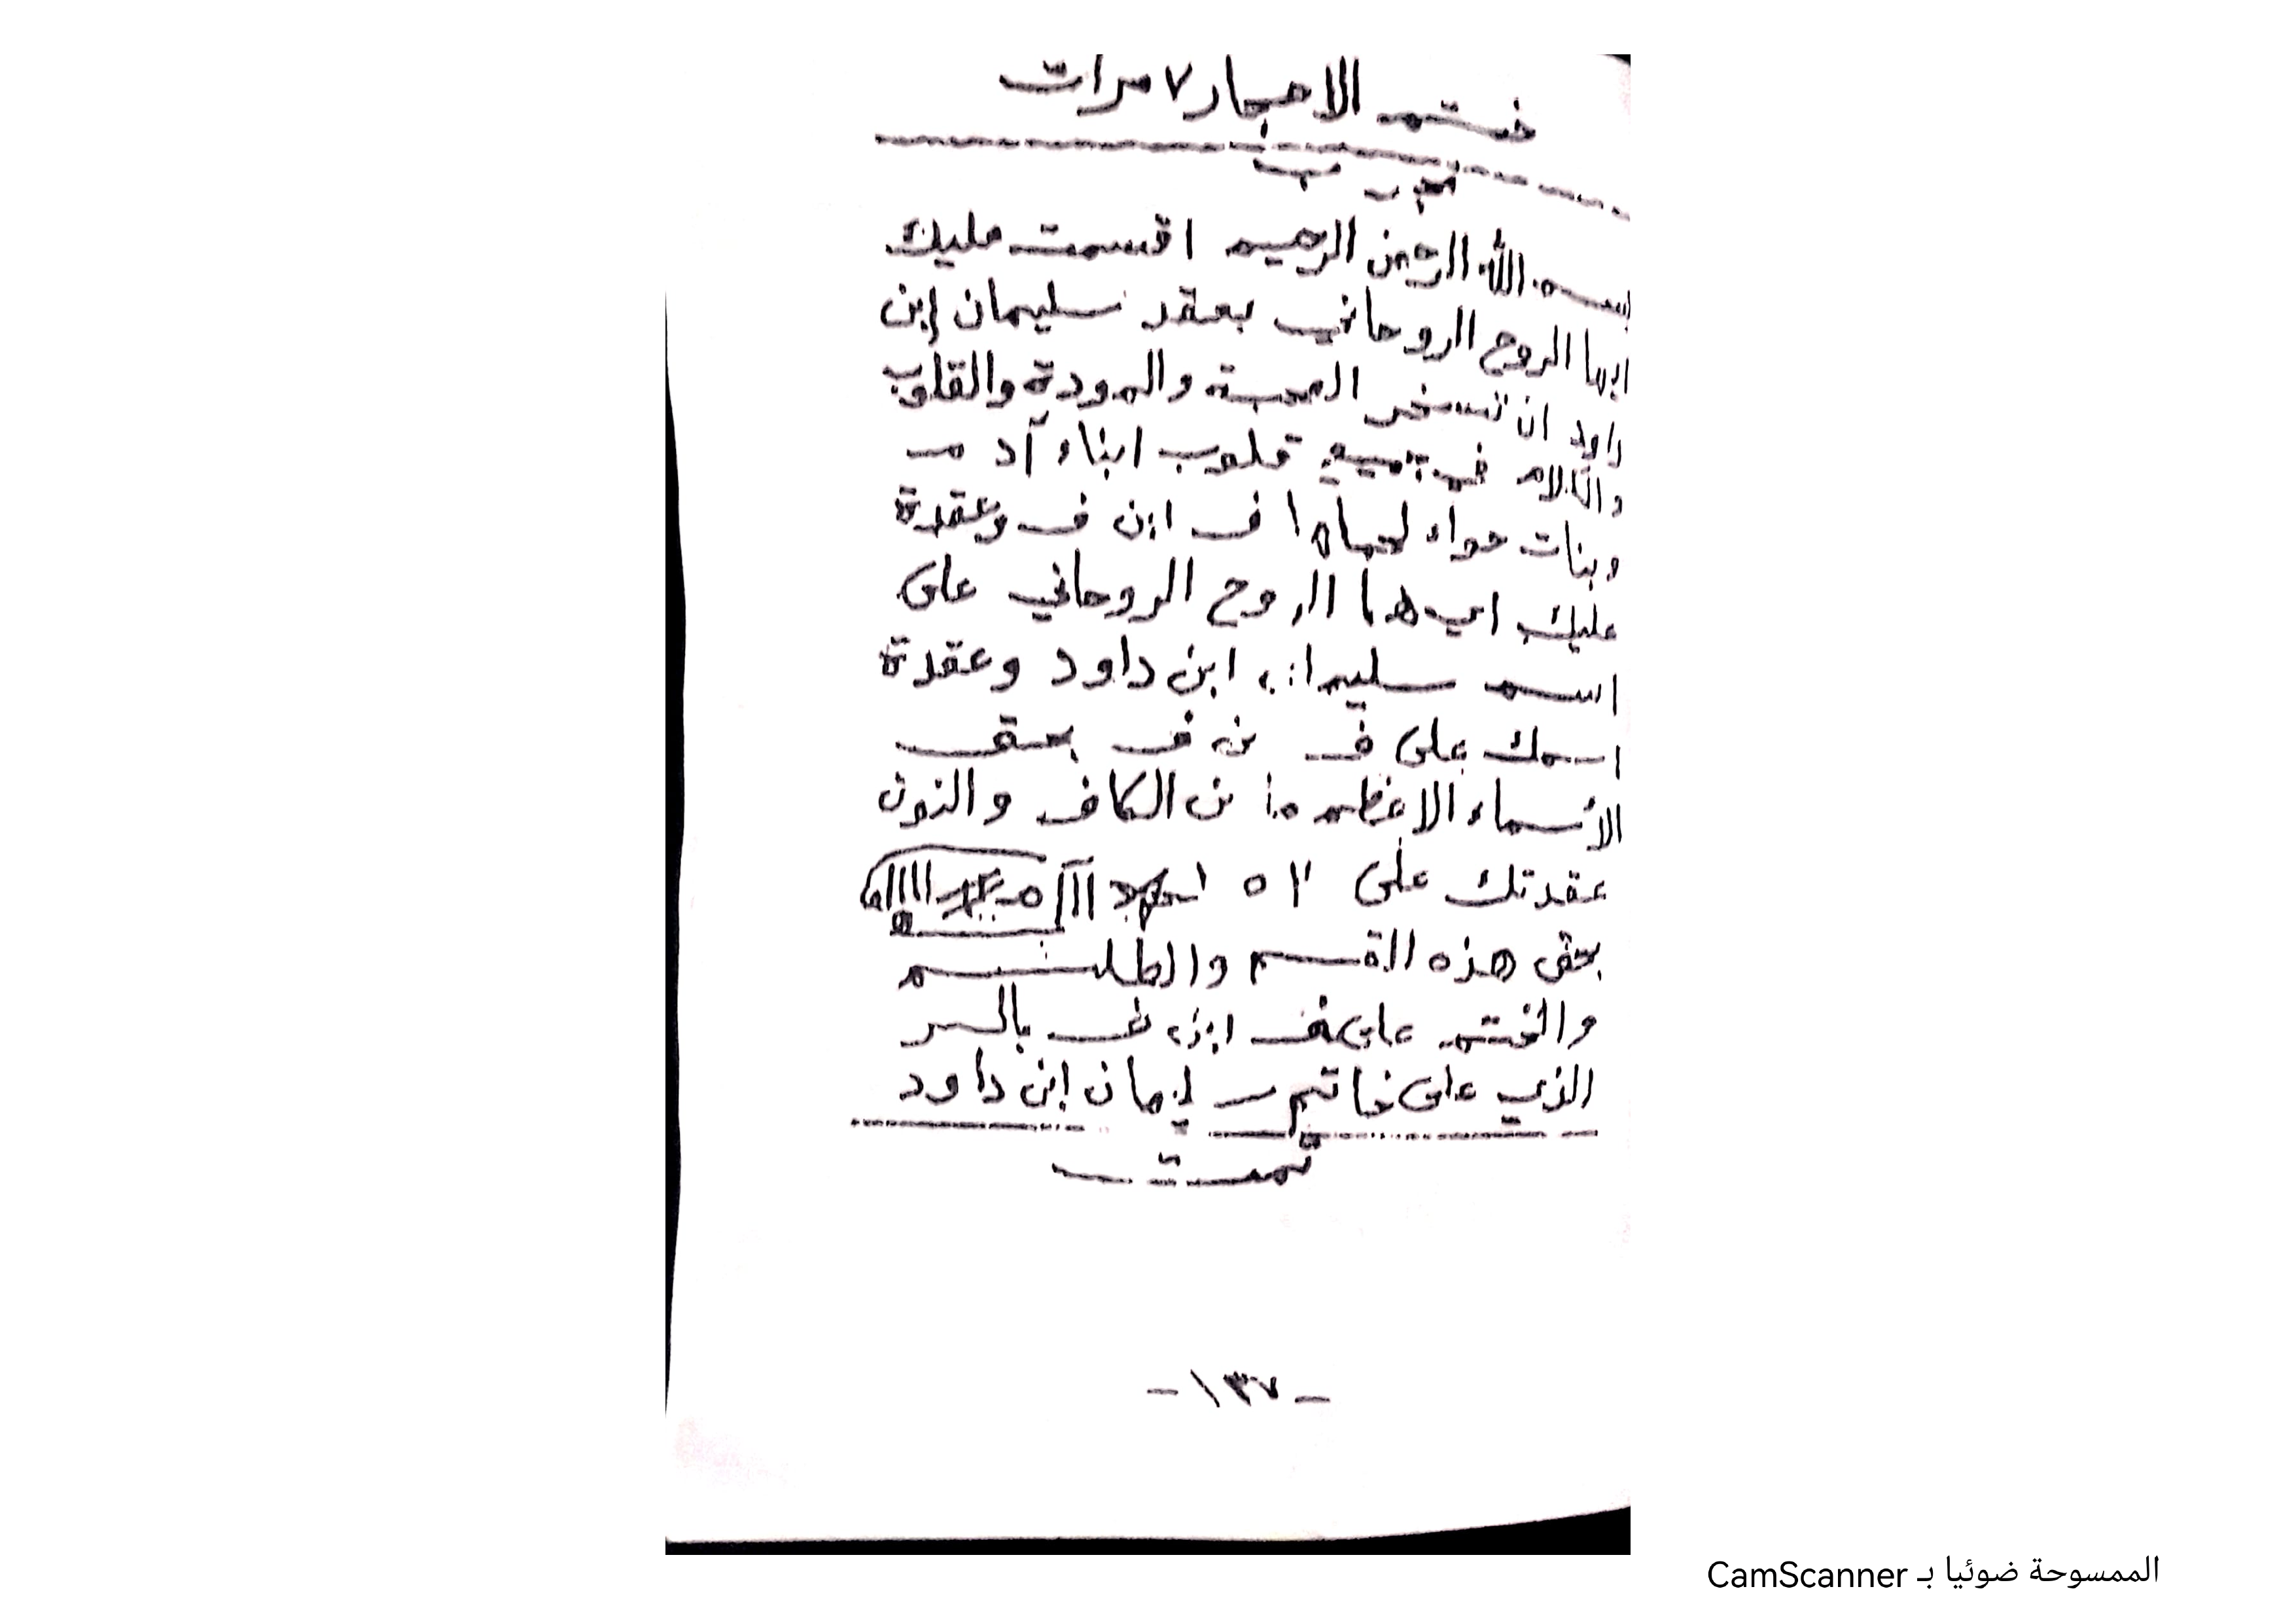 ختم الاحجار ٧ مرات
مجرب
بسم الله الرحمن الرحيم اقسمت عليك
ايها الروح الروحاني بعقد سليمان إبن
داود ان تسخر المحبة والمودة والقلوب
والكلام في جميع قلوب ابناء آدم
وبنات حواء ف ابن ف وعقدة
عليك ايها الروح الروحاني على
اسم سليمان ابن داود وعقدة
اسمك على ف بن ف بحق
الأسماء الاعظم بن الكاف والنون
عقدتك على
بحق هذه القسم والطلسم
والختم على ف ابن ف بالسر
الذي على خاتم سليمان إبن داود
تمت
- ١٣٧ -
الممسوحة ضوئيا بـ CamScanner